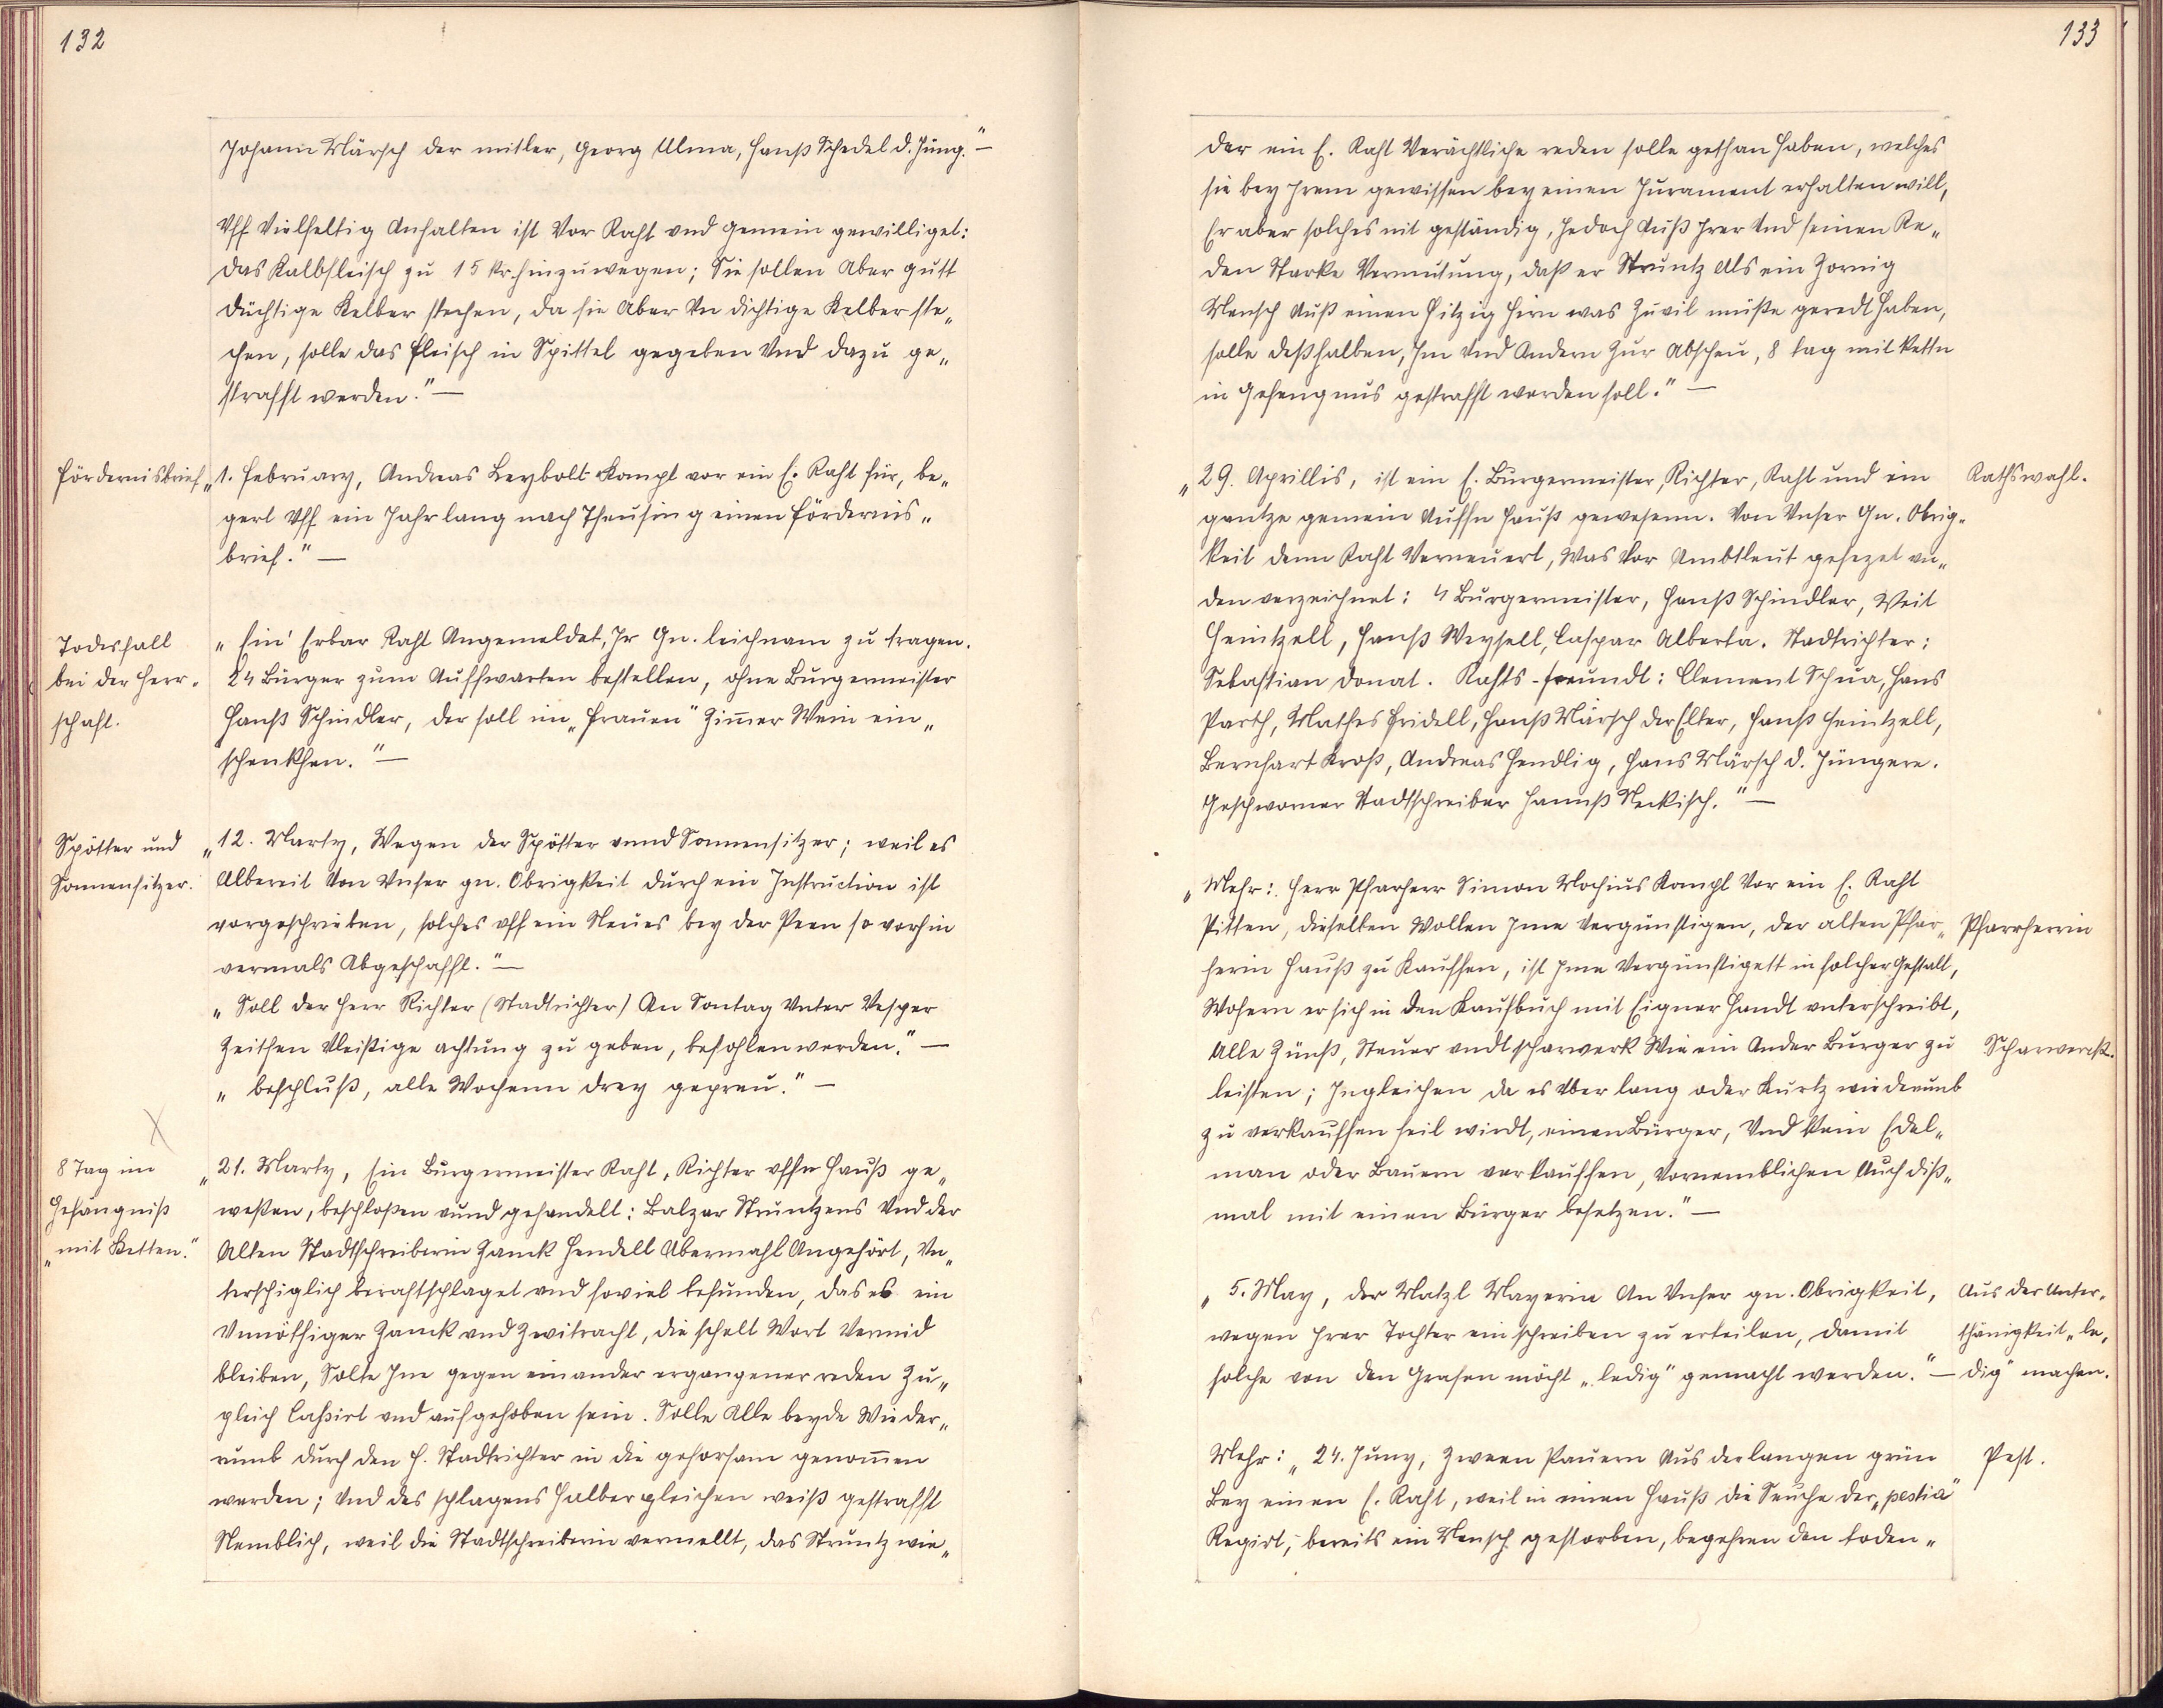 132
Johann Märsch der mitler, Georg Ulma, Hanß Schedel d. Jüng." —
Vff Vielfeltig Anhalten ist Vor Raht vnd gemein gewilliget:
das Kalbfleisch zu 15 kr. hinzuwegen; Sie sollen Aber gutt
düchtige Kelber stechen, da sie Aber Vn dichtige Kelber ste„
chen, solle das fleisch in Spittel gegeben Vnd dazu ge„
strafft werden." —
Fördernisbrief
„1. February, Andreas Leybolt kompt vor ein E. Raht für, be„
gert Vff ein Jahr lang nach Theusing einen fördernis„
brief." —
Todesfall
bei der Herr-
schaft.
„Ein' Erbar Raht Angemeldet, Ir Gn. leichnam zu tragen.
24 Bürger zum Auffwarten bestellen, ohne Burgermeister
Hanß Schindler, der soll im „Frauen" Zimer Wein ein„
schenkhen." —
Spötter und
Sonnensitzer.
„12. Marty, Wegen der Spötter vnnd Sonnensitzer; weil es
Albereit Von Vnser gn. Obrigkeit durch ein Instruction ist
vorgeschrieben, solches vff ein Neues bey der Peen so vorhin
vermals Abgeschafft." —
„Soll der Herr Richter (Stadtrichter) An Sontag Vnter Vesper
Zeithen Vleißige achtung zu geben, befohlen werden." —
„beschluß, alle Wochenn drey gepreu." —
8 Tag im
Gefängniß
„mit Ketten."
„21. Marty, Ein Burgermeister Raht, Richter vffn Hauß ge„
weßen, beschloßen vnnd gehandelt: Balzar Struntzens Vnd der
Alten Stadtschreiberin Zanck Hendell Abermahl Angehört, Vn„
terschiglich berahtschlaget vnd soviel befunden, das es ein
Vnnöthiger Zanck vnd Zwitracht, die schelt Wort Vermid
bleiben, Solte Inn gegen einander ergangener reden Zu„
gleich Caßirt vnd aufgehoben sein. Solle Alle beyde Wieder„
rumb durch den H. Stadtrichter in die gehorsam genomen
werden; Vnd des schlagens halber gleichen weiß gestrafft
Nemblich, weil die Stadtschreiberin vermellt, das Struntz wie„
133
der ein E. Raht Verächtliche reden solle gethan haben, welches
sie bey Irem gewissen bey einen Jurament erhalten will,
Er aber solches nit geständig, Jedoch Auß Irer Vnd seinen Re„
den Starke Vermutung, daß er Struntz Als ein Zornig
Mensch Auß einen hitzig Hirn was Zuvil müße geredt haben,
solle deßhalben, Im Vnd Andern Zur Abscheu, 8 tag mit Kettn
in Gefengnus gestrafft werden soll." —
„29. Aprillis, ist ein E. Burgermeister, Richter, Raht und ein
Rathswahl.
gantze gemein Auffn Hauß gewesenn. Von Vnser Gn. Obrig-
keit denn Raht Verneuert, Was Vor Ambtleut gesezet vn„
den verzeichnet: 4 Burgermeister, Hanß Schindler, Veit
Heintzell, Hanß Weysell, Caspar Alberta. Stadtrichter:
Sebastian Donat. Rahts-freundt: Clement Schua, Hans
Parth, Mathes Fridell, Hanß Märsch der Elter, Hanß Heintzell,
Bernhart Kroß, Andreas Hendlig, Hans Märsch d. Jüngere.
Geschworner Stadtschreiber Hannß Neckisch." —
„Mehr: Herr Pfarherr Simon Mochius kompt Vor ein E. Raht
Pitten, dieselben Wollen Ime Vergünstigen, der alten Pfar„
Pfarrherrin
herin Hauß zu Kauffen, ist Ime Vergünstigett in solcher Gestalt,
Wofern er sich in den Kaufbuch mit Eigner Handt vnterschreibt,
Alle Zünß, Steuer vndt scharwerk Wie ein Ander Burger zu
Scharwerk.
leisten; Ingleichen da es Vber lang oder Kurtz wiederumb
zu verkauffen feil wirdt, einen Bürger, Vnd kein Edel„
man oder Bauern verkauffen, Vornemblichen Auch diß„
mal mit einen Bürger besetzen." —
„5. May, der Matzl Mayerin An Vnser gn. Obrigkeit,
wegen Irer Tochter ein schreiben zu erteilen, damit
solche von den Grafen möcht „ledig" gemacht werden." —
Aus der Unter-
thänigkeit „le-
dig" machen.
Mehr: „24. Juny, Zween Pauern Aus der langen grün
Pest.
Bey einen E. Raht, weil in einen Hauß die Seuche der „pestia"
Regirt, bereits ein Mensch gestorben, begehren den toden„